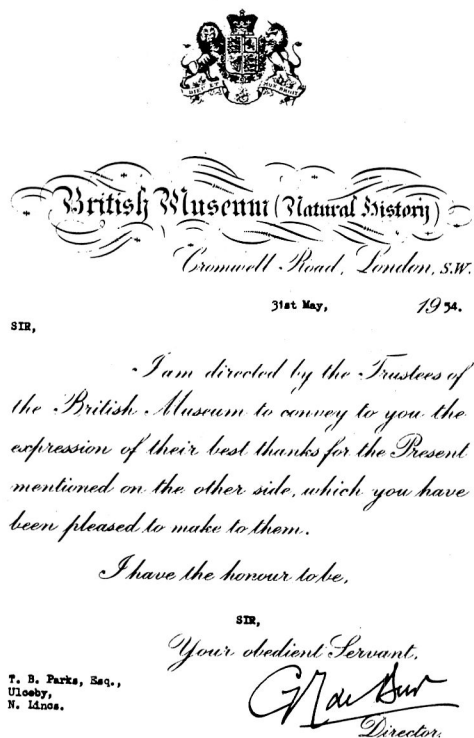 DIEU ET MON DROIT
British Museum (Natural History)
Cromwell Road, London, S.W.
31st May, 1954.
SIR,
I am directed by the Trustees of
the British Museum to convey to you the
expression of their best thanks for the Present
mentioned on the other side, which you have
been pleased to make to them.
I have the honour to be,
SIR,
Your obedient Servant,
T. B. Parks, Esq.,
Ulceby,
N. Lincs.
Director.